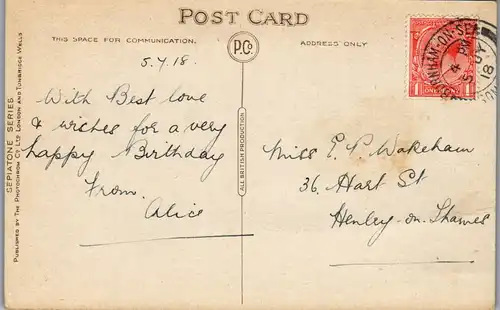 POST CARD
THIS SPACE FOR COMMUNICATION.
P.C.
ADDRESS ONLY
5.7.18.
With Best love
& wishes for a very
happy Birthday
from
Alice
Miss E. P. Wakeham
36, Hart St
Henley-on-Thames
ALL BRITISH PRODUCTION
SEPIATONE SERIES
PUBLISHED BY THE PHOTOCHROM CO. LTD. LONDON AND TUNBRIDGE WELLS
1 ONE PENNY 1
5 JY
18